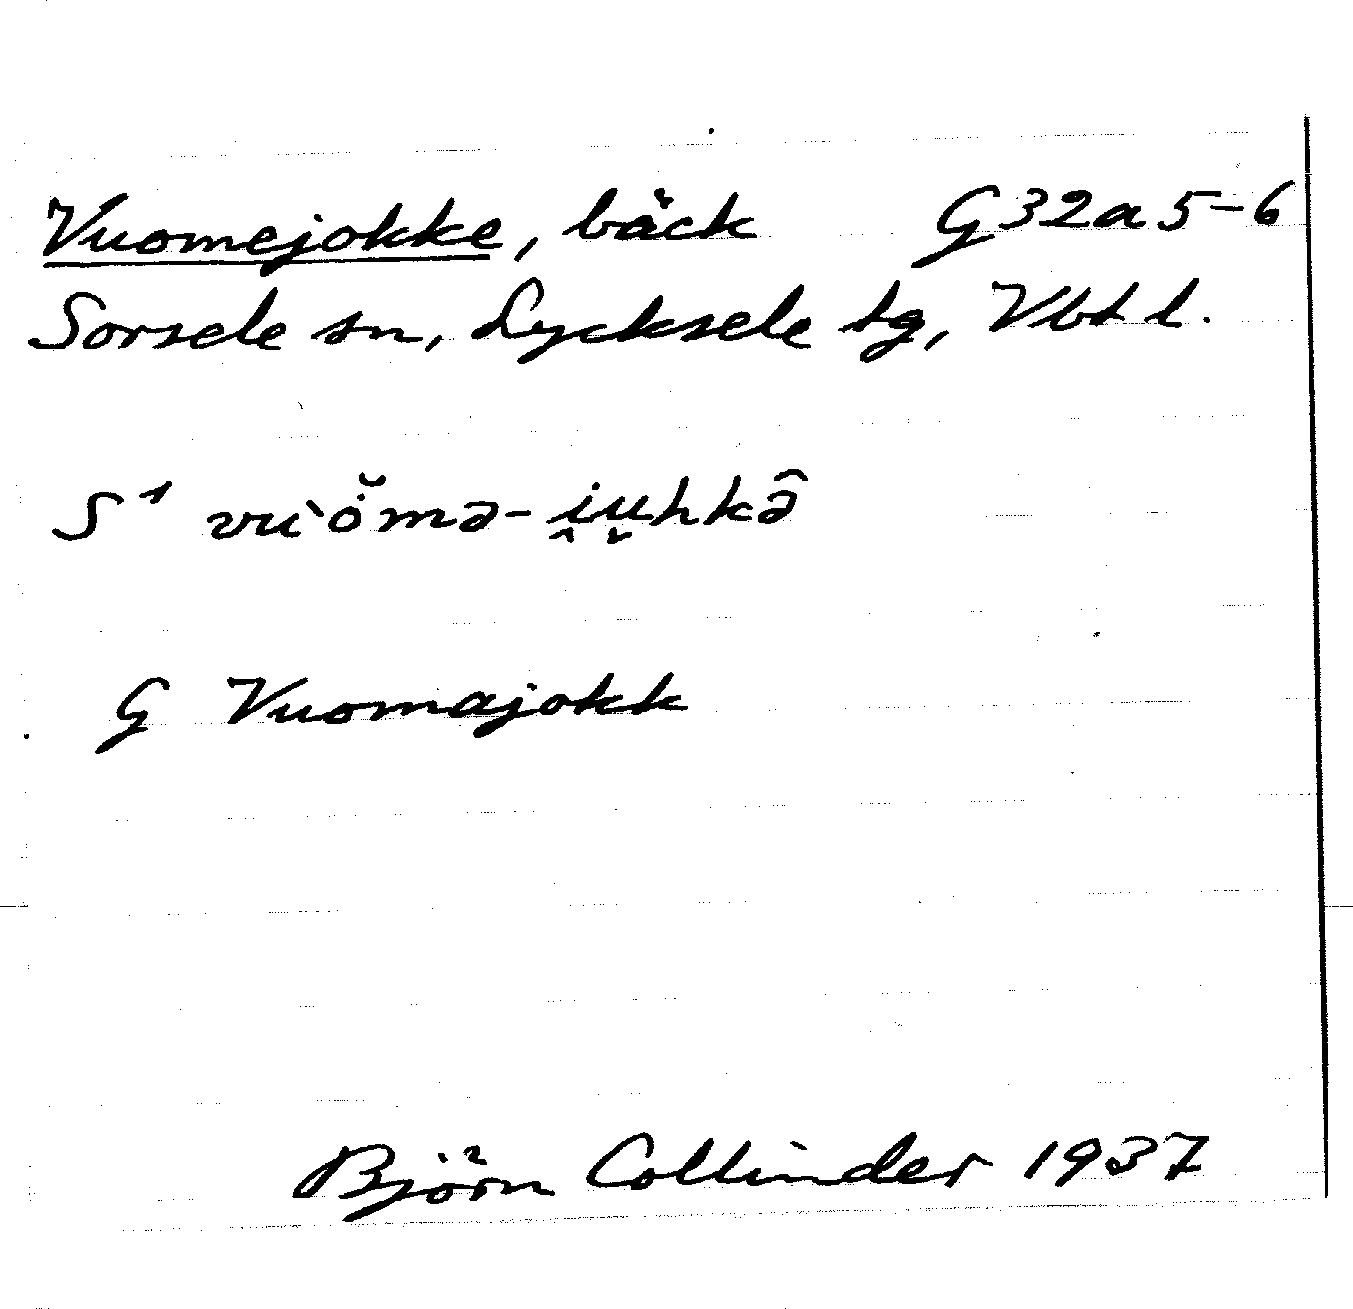 Vuomejokke, bäck G32a5-6
Sorsele sn, Lycksele tg, Vbtl.
S¹ vuˋȯ̆mə-i̭u̬hkə̑
G Vuomajokk
Björn Collinder 1937